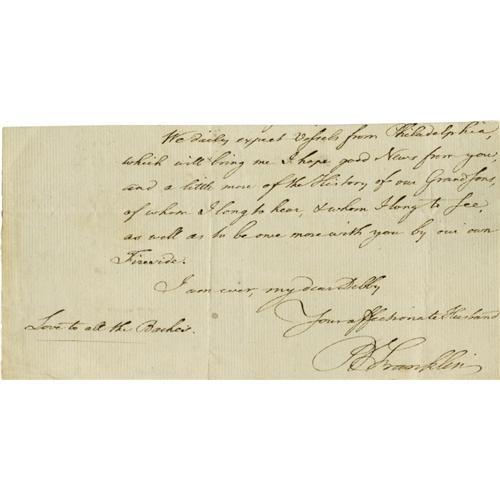 We daily expect Vessels from Philadelphia,
which will bring me I hope good News from you
and a little more of the History of our Grandsons,
of whom I long to hear, & whom I long to see,
as well as to be once more with you by our own
Fireside.
I am ever, my dear Debby
Your affectionate Husband
Love to all the Baches.
B Franklin